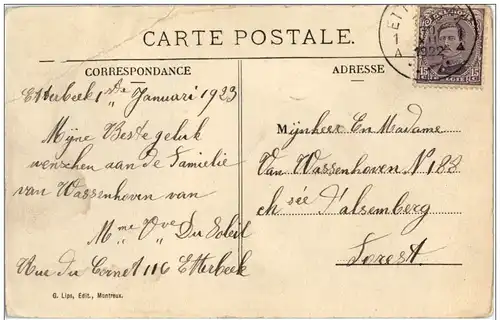 CARTE POSTALE.
CORRESPONDANCE
Etterbeek 1ste Januari 1923
Mijne Beste geluk
wenschen aan de Familie
van Wassenhoven van
Mme Vve Du Soleil
Rue du Cornet 116 Etterbeek
G. Lips, Édit., Montreux.
ADRESSE
Mijnheer En Madame
Van Wassenhoven N° 188
ch sée d'alsemberg
Forest.
ETT
1
1922
A
15 15